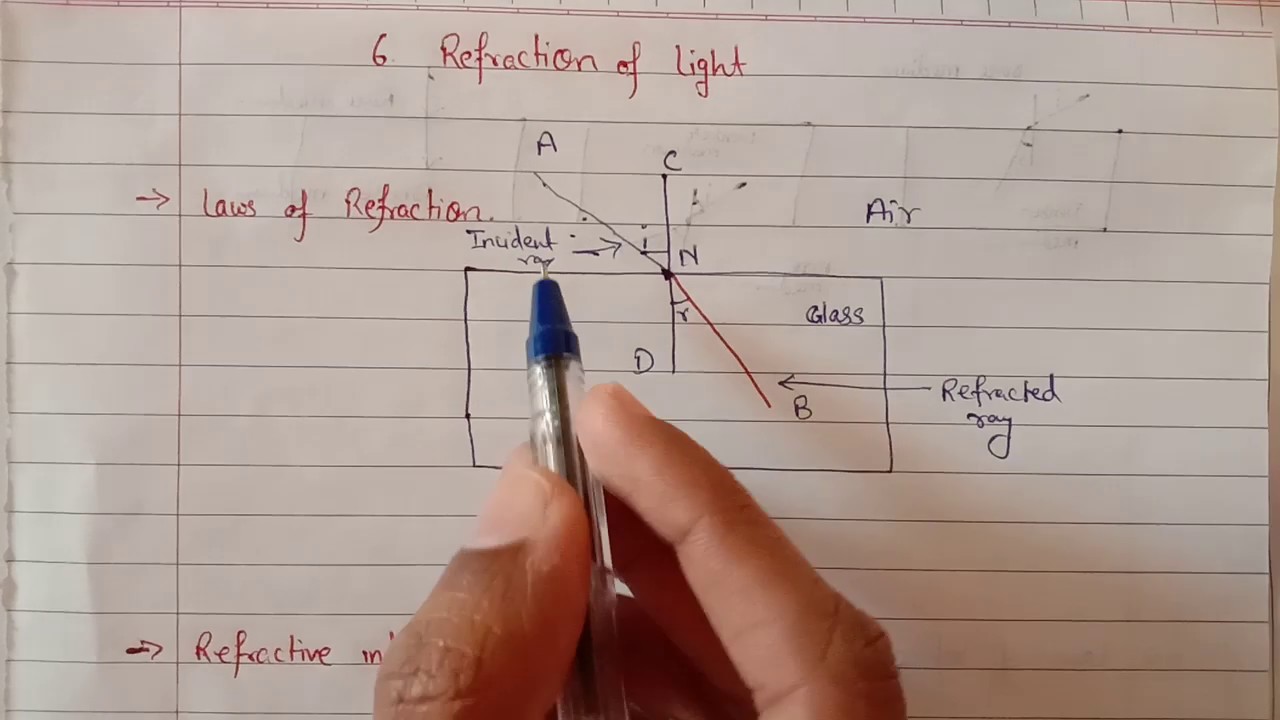 6. Refraction of light
A
C
→ Laws of Refraction.
Air
i
Incident
ray
N
r
Glass
D
B
Refracted
ray
→ Refractive